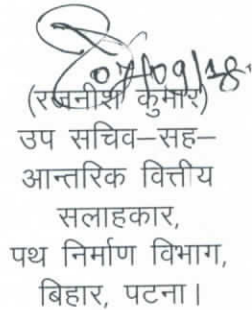 07/09/18
(रजनीश कुमार)
उप सचिव–सह–
आन्तरिक वित्तीय
सलाहकार,
पथ निर्माण विभाग,
बिहार, पटना।